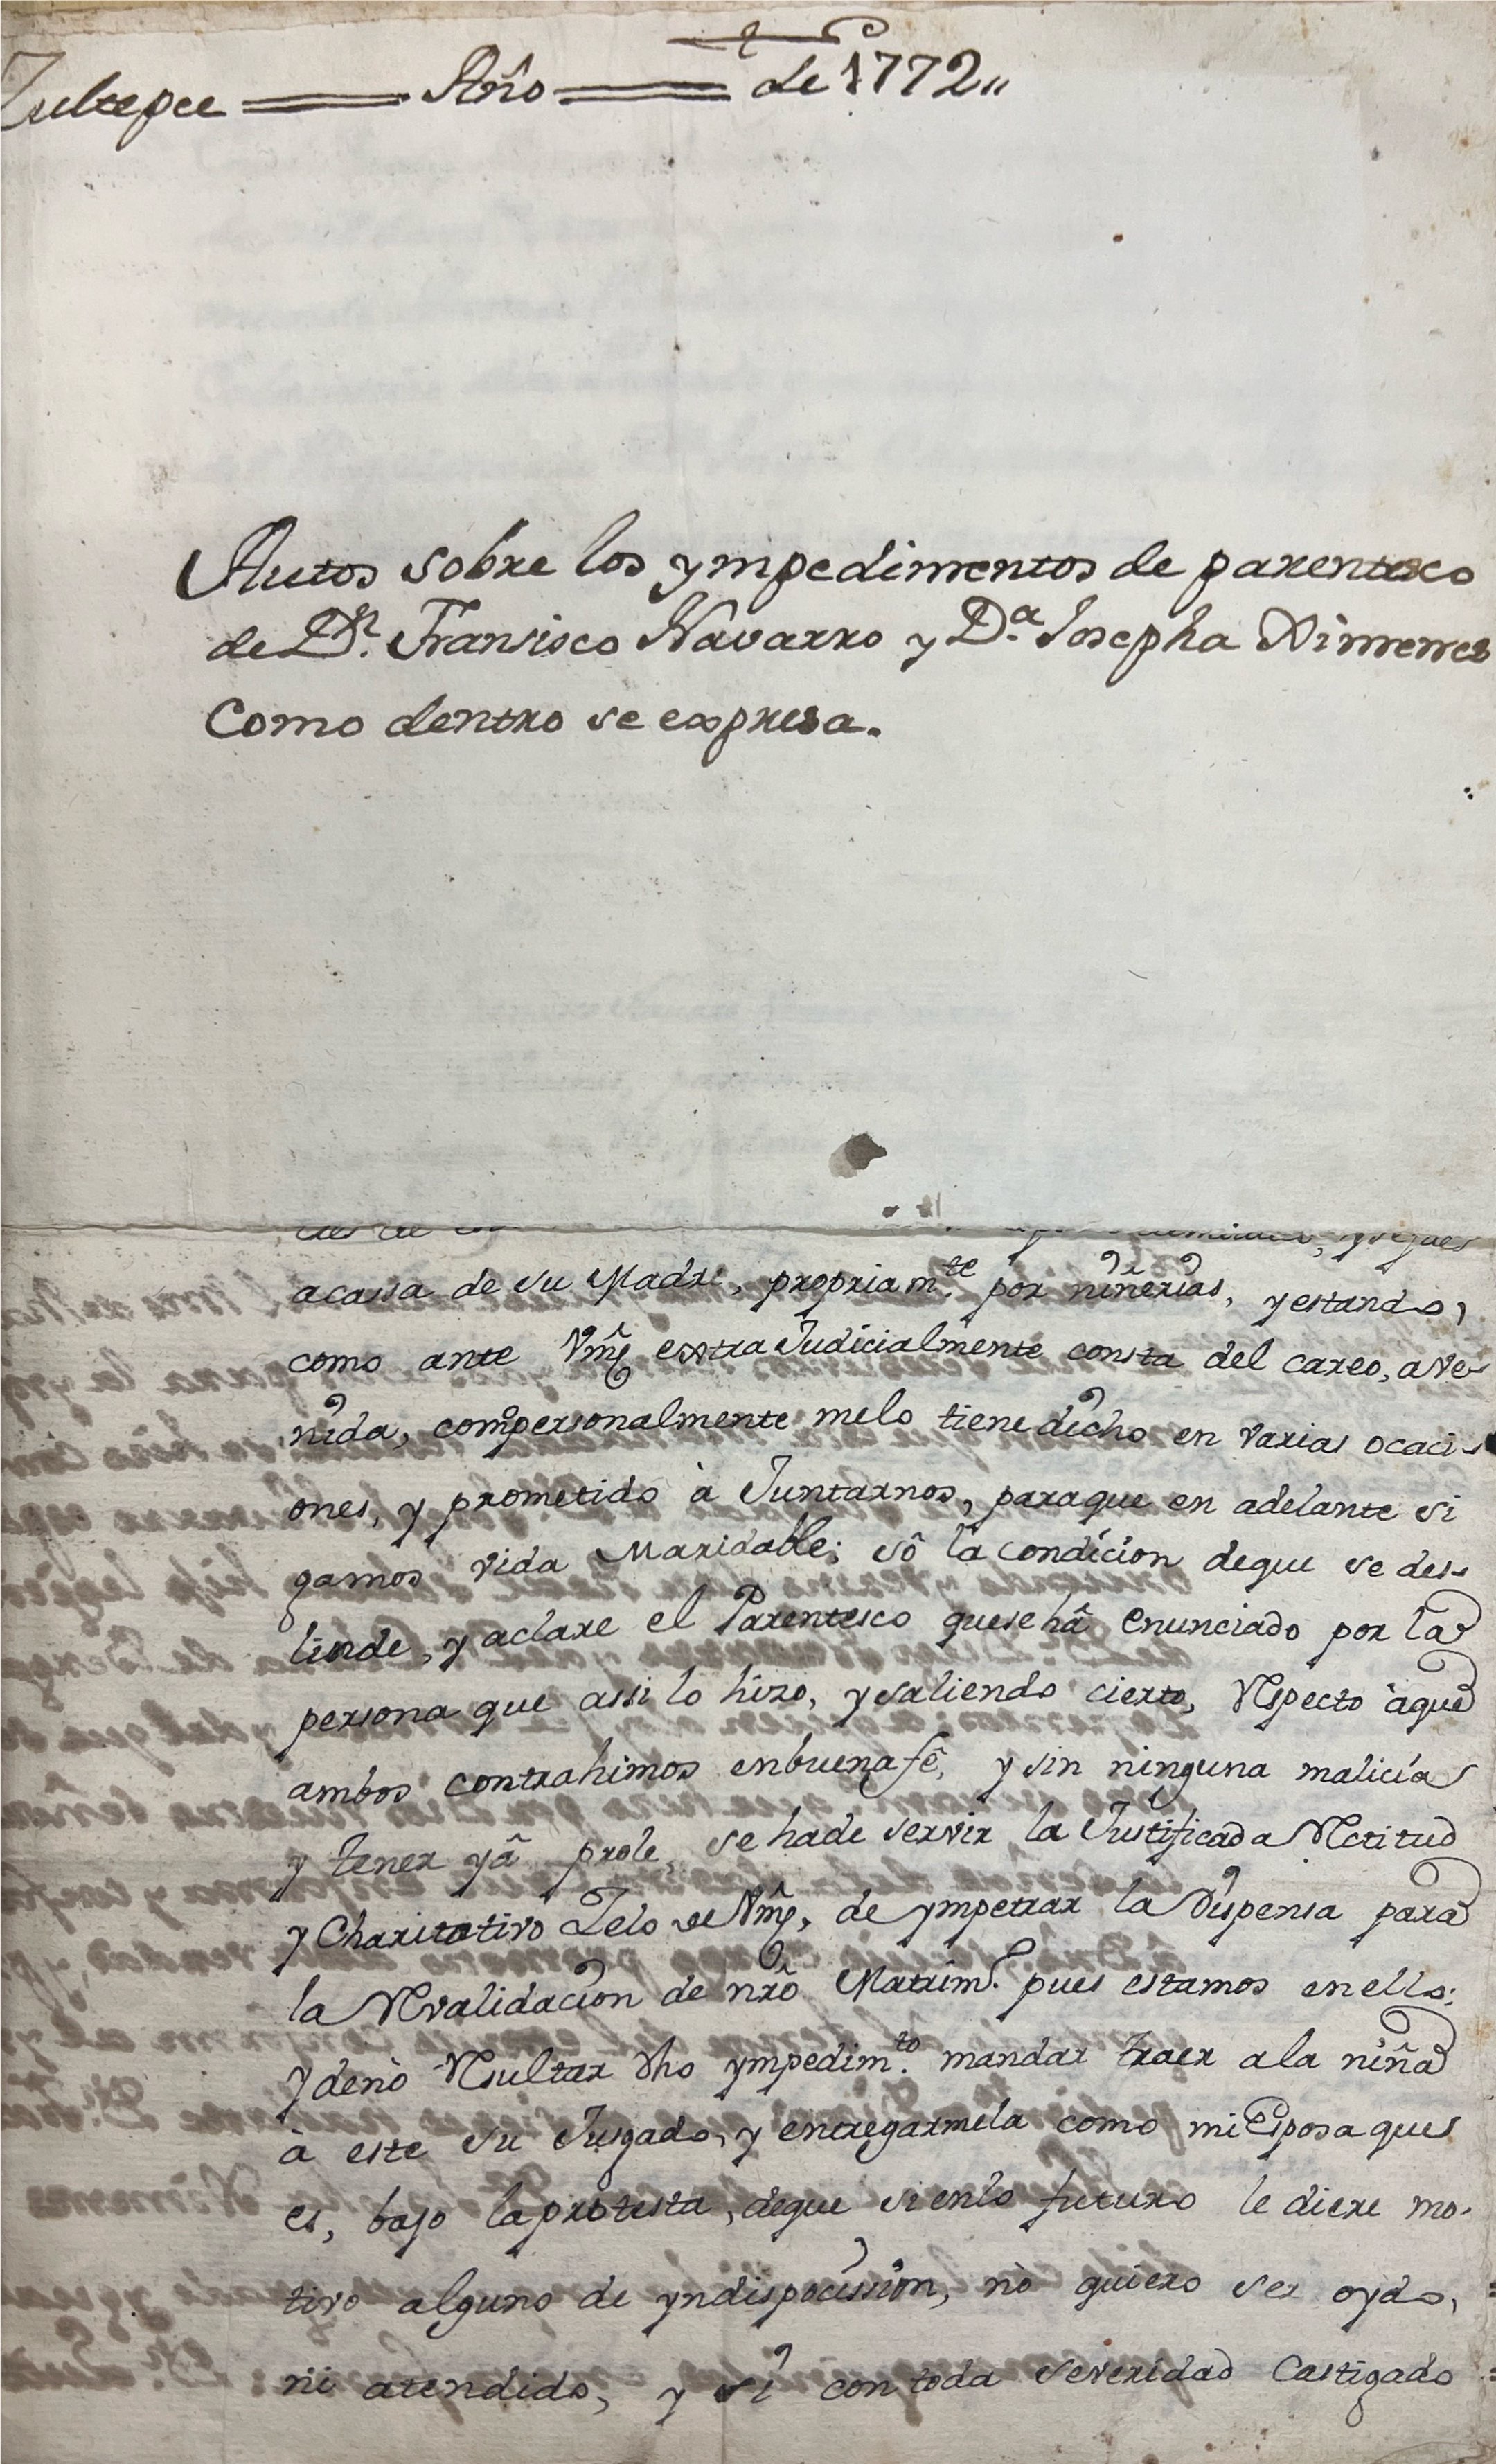 Zultepec == Año == de 1772,,
Autos sobre los ympedimentos de parentesco
de Dn. Fransisco Navarro y Da. Josepha Ximenes
Como dentro se expresa.
acassa de su Madre, propriamte. por niñerias, y estando,
como ante Vmd extra Judicialmente consta del careo, ave-
nida, comopersonalmente melo tiene dicho en varias ocaci-
ones, y prometido à Juntarnos, paraque en adelante si
gamos vida Maridable; sô la condicion deque se des-
linde, y aclare el Parentesco quesehâ enunciado por la
persona que assi lo hizo, y saliendo cierto, Respecto àque
ambos contrahimos enbuenafê, y sin ninguna malicia
y tener yâ prole, se hade servir la Justificada Rectitud
y Charitativo Zelo de Vmd, de ympetrar la Dispensa para
la Revalidacion de nrô Matrimo. pues estamos enello;
y denò Resultar dho ympedimto. mandar traer ala niña
à este su Jusgado, y entregarmela como mi Esposa ques
es, bajo laprotesta, deque si enlo futuro le diere mo-
tivo alguno de yndispocission, nò quiero ser oydo,
ni atendido, y sí con toda severidad Castigado